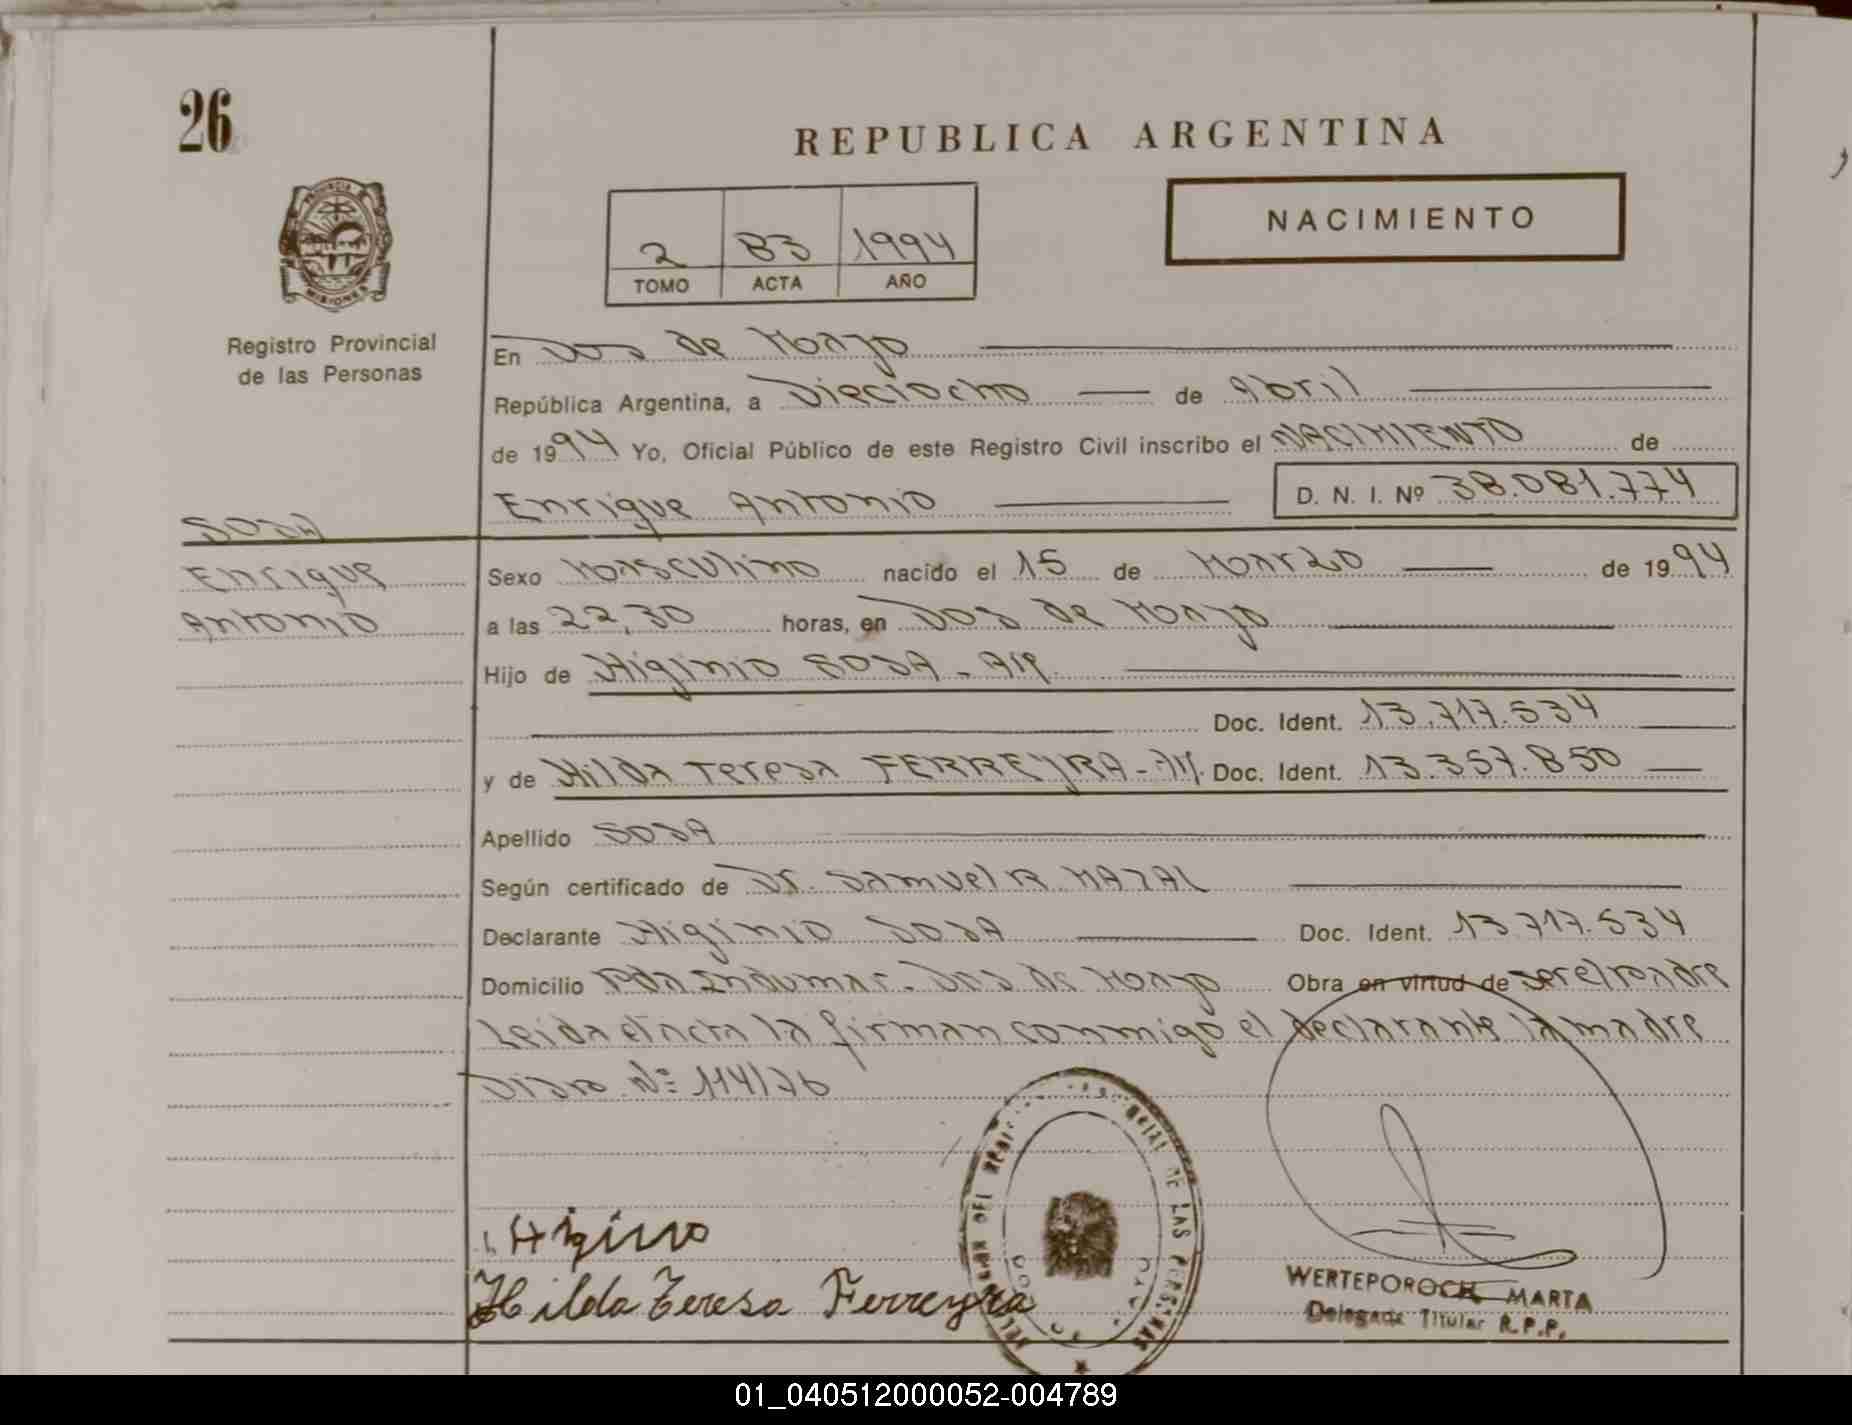 26
REPUBLICA ARGENTINA
NACIMIENTO
2 83 1994
TOMO ACTA AÑO
PROVINCIA DE
MISIONES
Registro Provincial
de las Personas
En Dos de Mayo
República Argentina, a Dieciocho de Abril
de 1994 Yo, Oficial Público de este Registro Civil inscribo el NACIMIENTO de
Enrique Antonio D. N. I. Nº 38.081.774
SOSA
Enrique
Antonio
Sexo Masculino nacido el 15 de Marzo de 1994
a las 22,30 horas, en Dos de Mayo
Hijo de Higinio SOSA - Arg.
Doc. Ident. 13.717.534
y de Hilda Teresa FERREYRA - Arg. Doc. Ident. 13.357.850
Apellido SOSA
Según certificado de Dr. Samuel R. MAZAL
Declarante Higinio SOSA Doc. Ident. 13.717.534
Domicilio Pda Indumar - Dos de Mayo Obra en virtud de ser el padre
Leida el acta la firman conmigo el declarante la madre
Nº 114/76
Higinio
Hilda Teresa Ferreyra
DE LAS PERSONAS
WERTEPOROCH MARTA
Delegada Titular R.P.P.
01_040512000052-004789